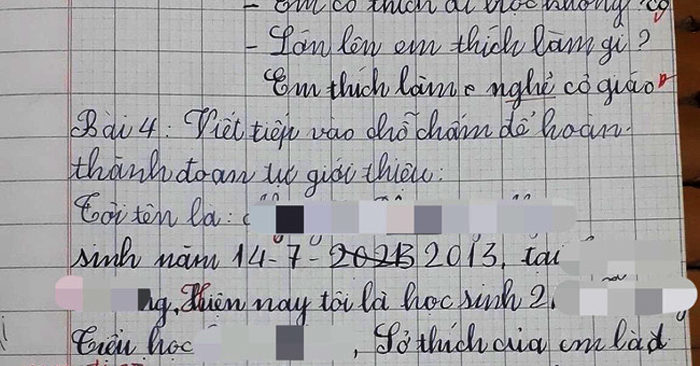 - Em có thích đi học không? Có
- Lớn lên em thích làm gì?
Em thích làm nghề cô giáo
Bài 4: Viết tiếp vào chỗ chấm để hoàn
thành đoạn tự giới thiệu:
Tôi tên là:
sinh năm 14-7-2013, tại
ng, Hiện nay tôi là học sinh 2
Tiểu học , Sở thích của em là đ